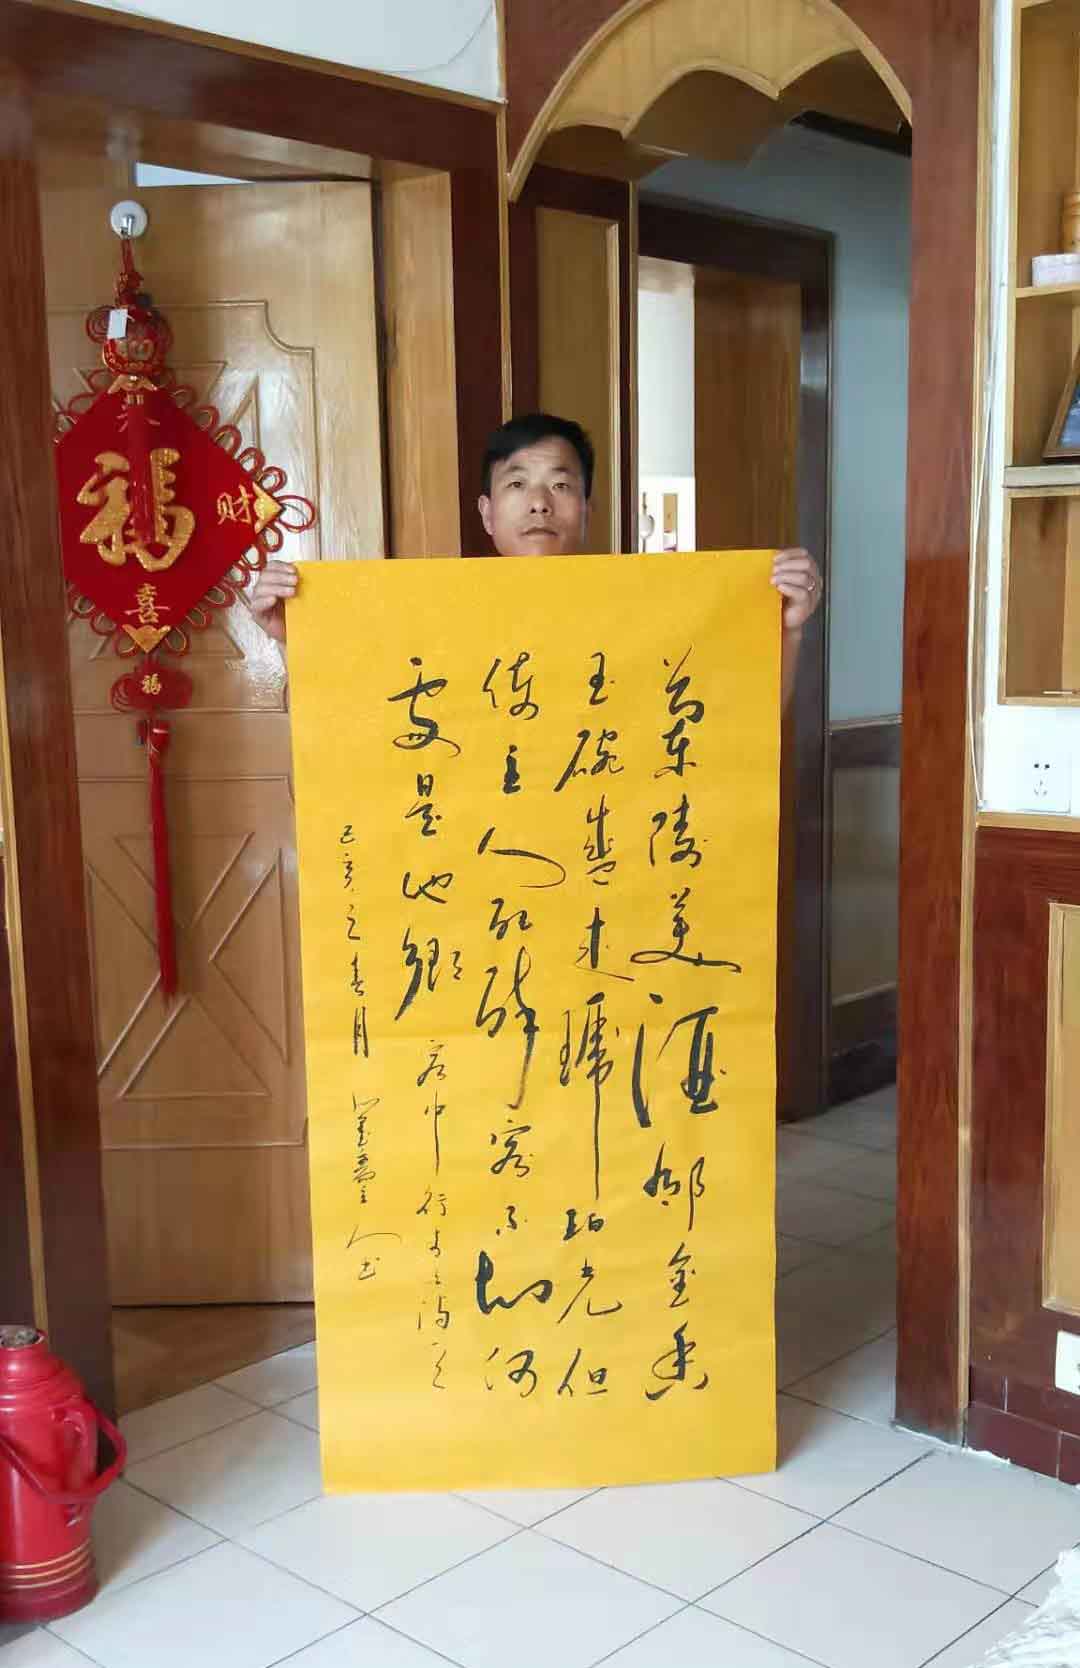 蘭陵美酒郁金香
玉碗盛来琥珀光但
使主人能醉客不知何
處是他鄉 客中行
己亥之春月 人书
福
财
喜
福